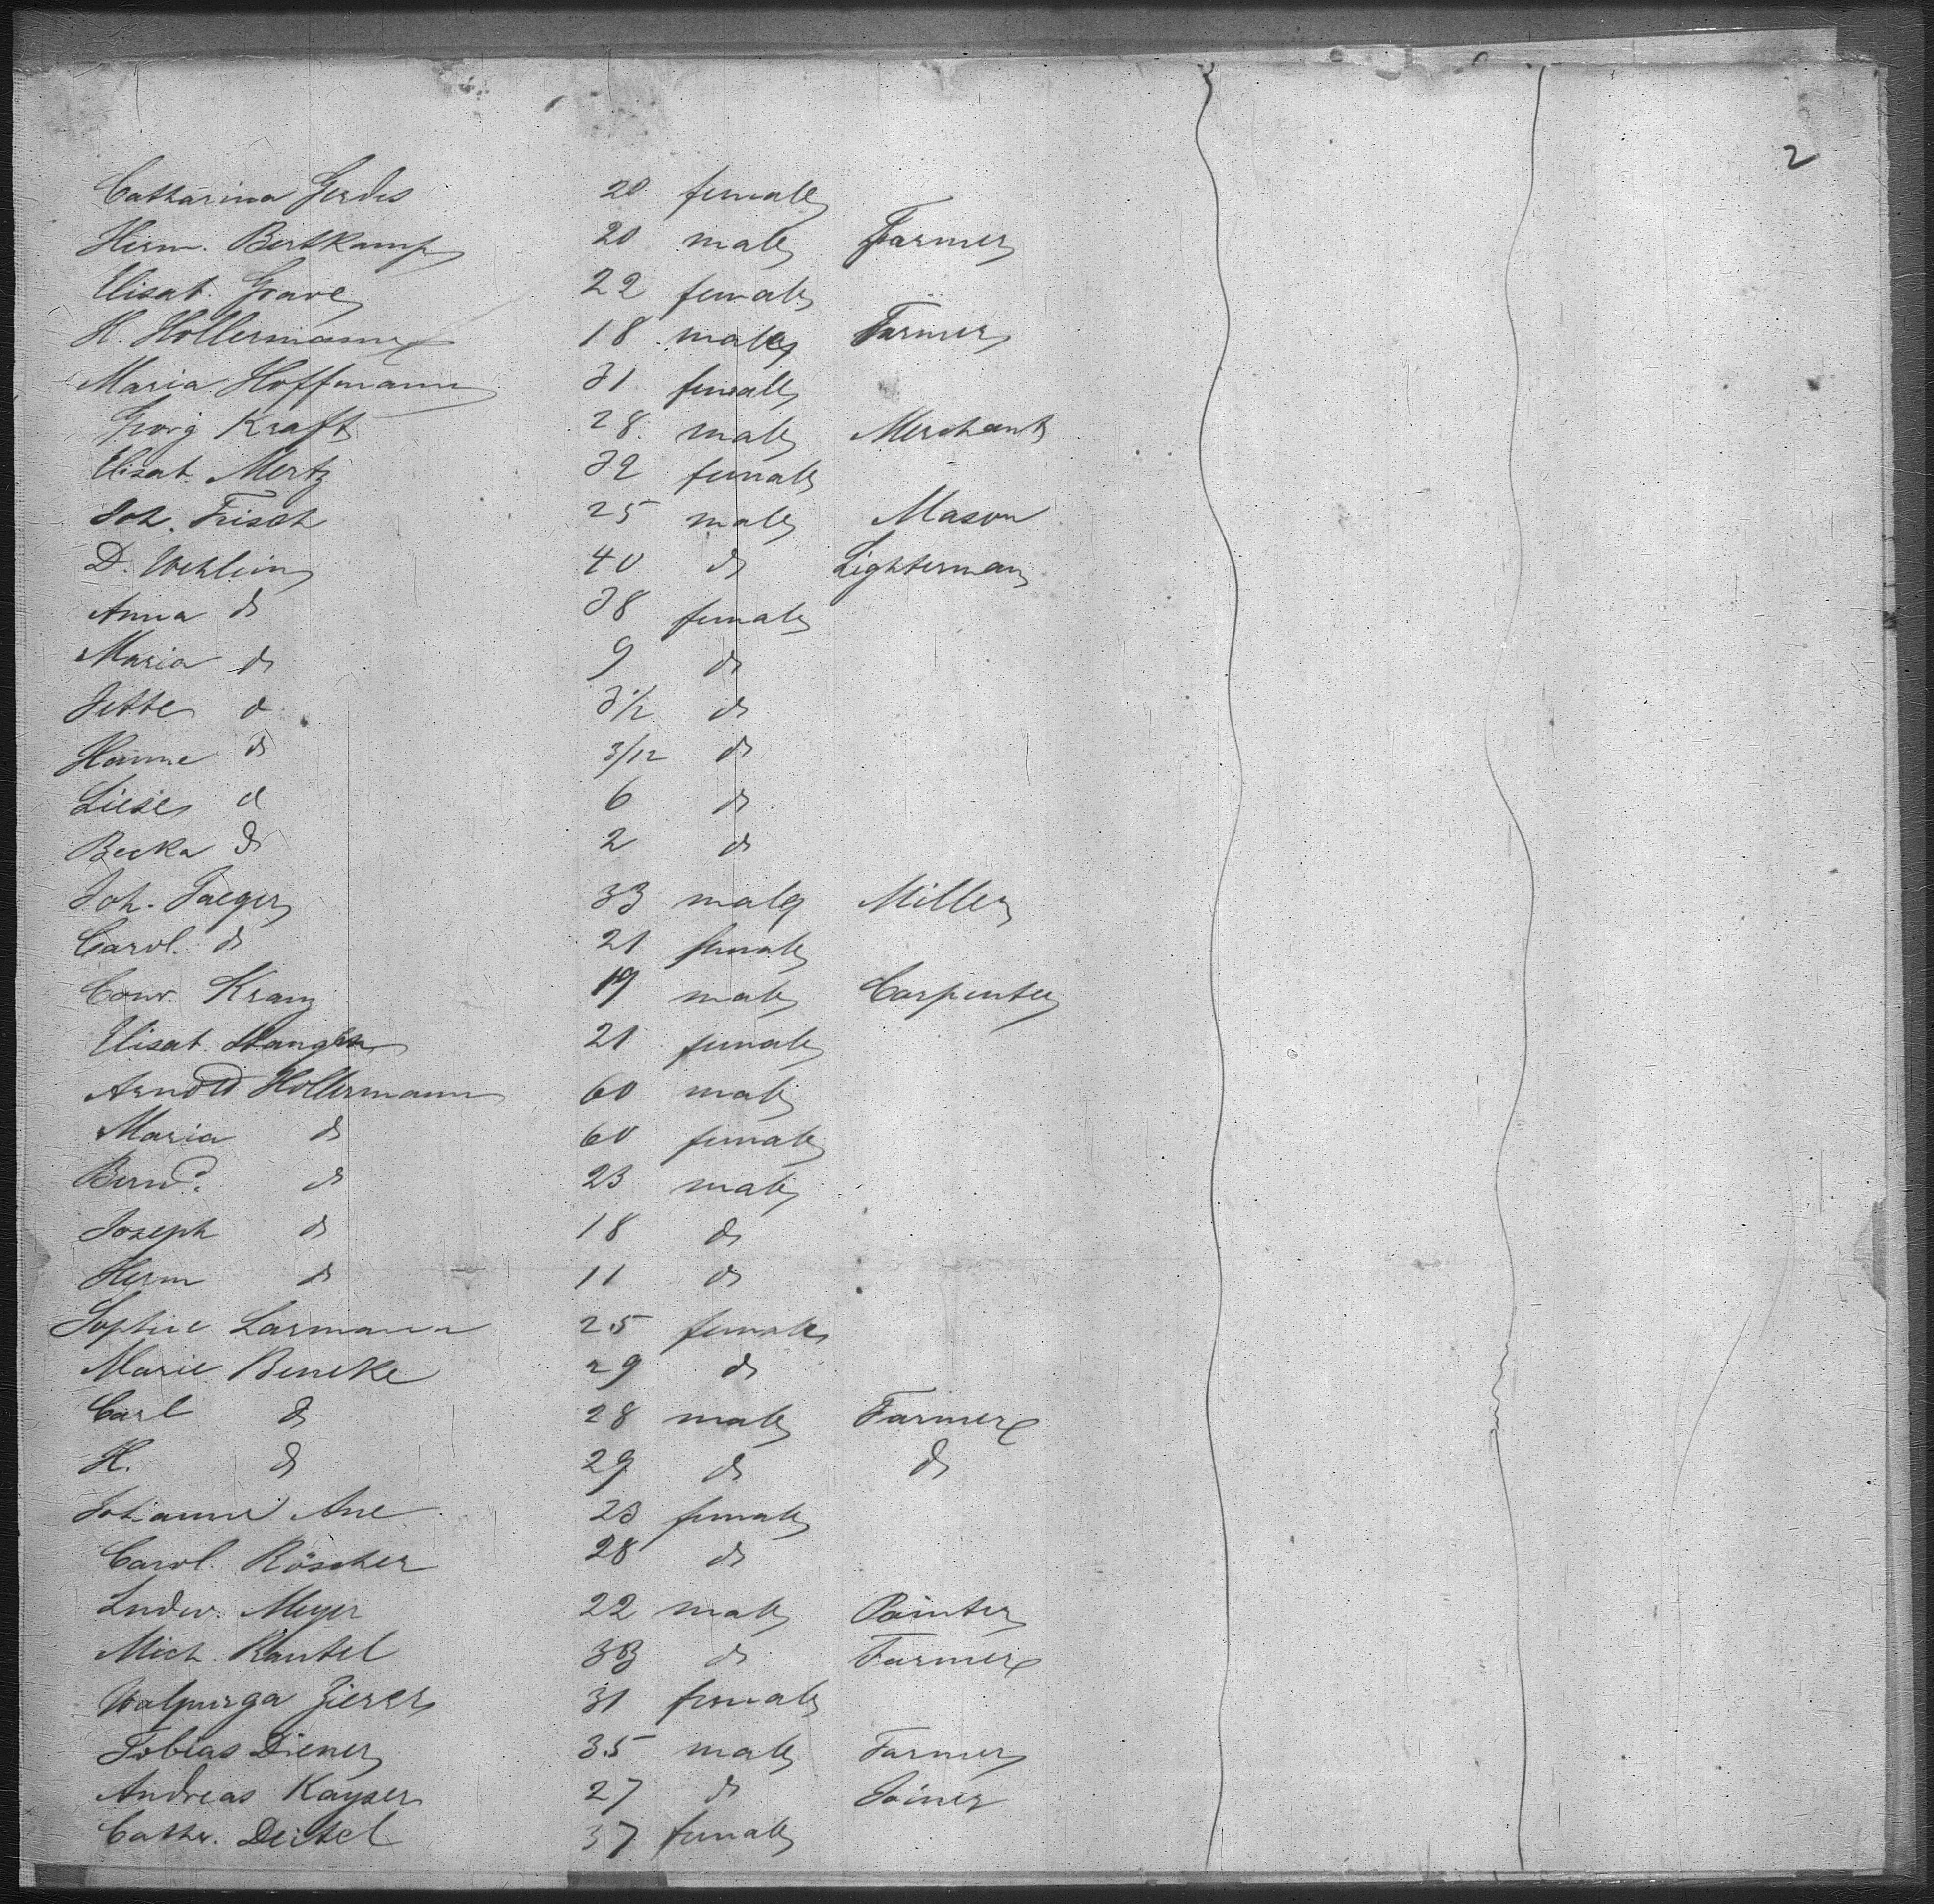 2
Catharina Gerdes 20 female
Herm. Bertkamp 20 male Farmer
Elisat. Grave 22 female
H. Hollermann 18 male Farmer
Maria Hoffmann 31 female
Georg Kraft 28 male Merchant
Elisat. Mertz 32 female
Joh. Frisch 25 male Mason
D. Wehlein 40 do Lighterman
Anna do 38 female
Maria do 9 do
Jette do 3 1/2 do
Hanne do 3/12 do
Liese do 6 do
Becka do 2 do
Joh. Jaeger 33 male Miller
Carol. do 21 female
Conr. Kranz 19 male Carpenter
Elisat. 21 female
Arnold Hollermann 60 male
Maria do 60 female
Bernd. do 23 male
Joseph do 18 do
Herm do 11 do
Sophie Larmann 25 female
Marie Beneke 29 do
Carl do 28 male Farmer
H. do 29 do do
Johanne Ane 23 female
Carol. Röscher 28 do
Ludw. Meyer 22 male Painter
Mich. Rautel 33 do Farmer
Walpurga Zierer 31 female
Tobias Diener 35 male Farmer
Andreas Kayser 27 do Joiner
Cathr. Deitel 37 female